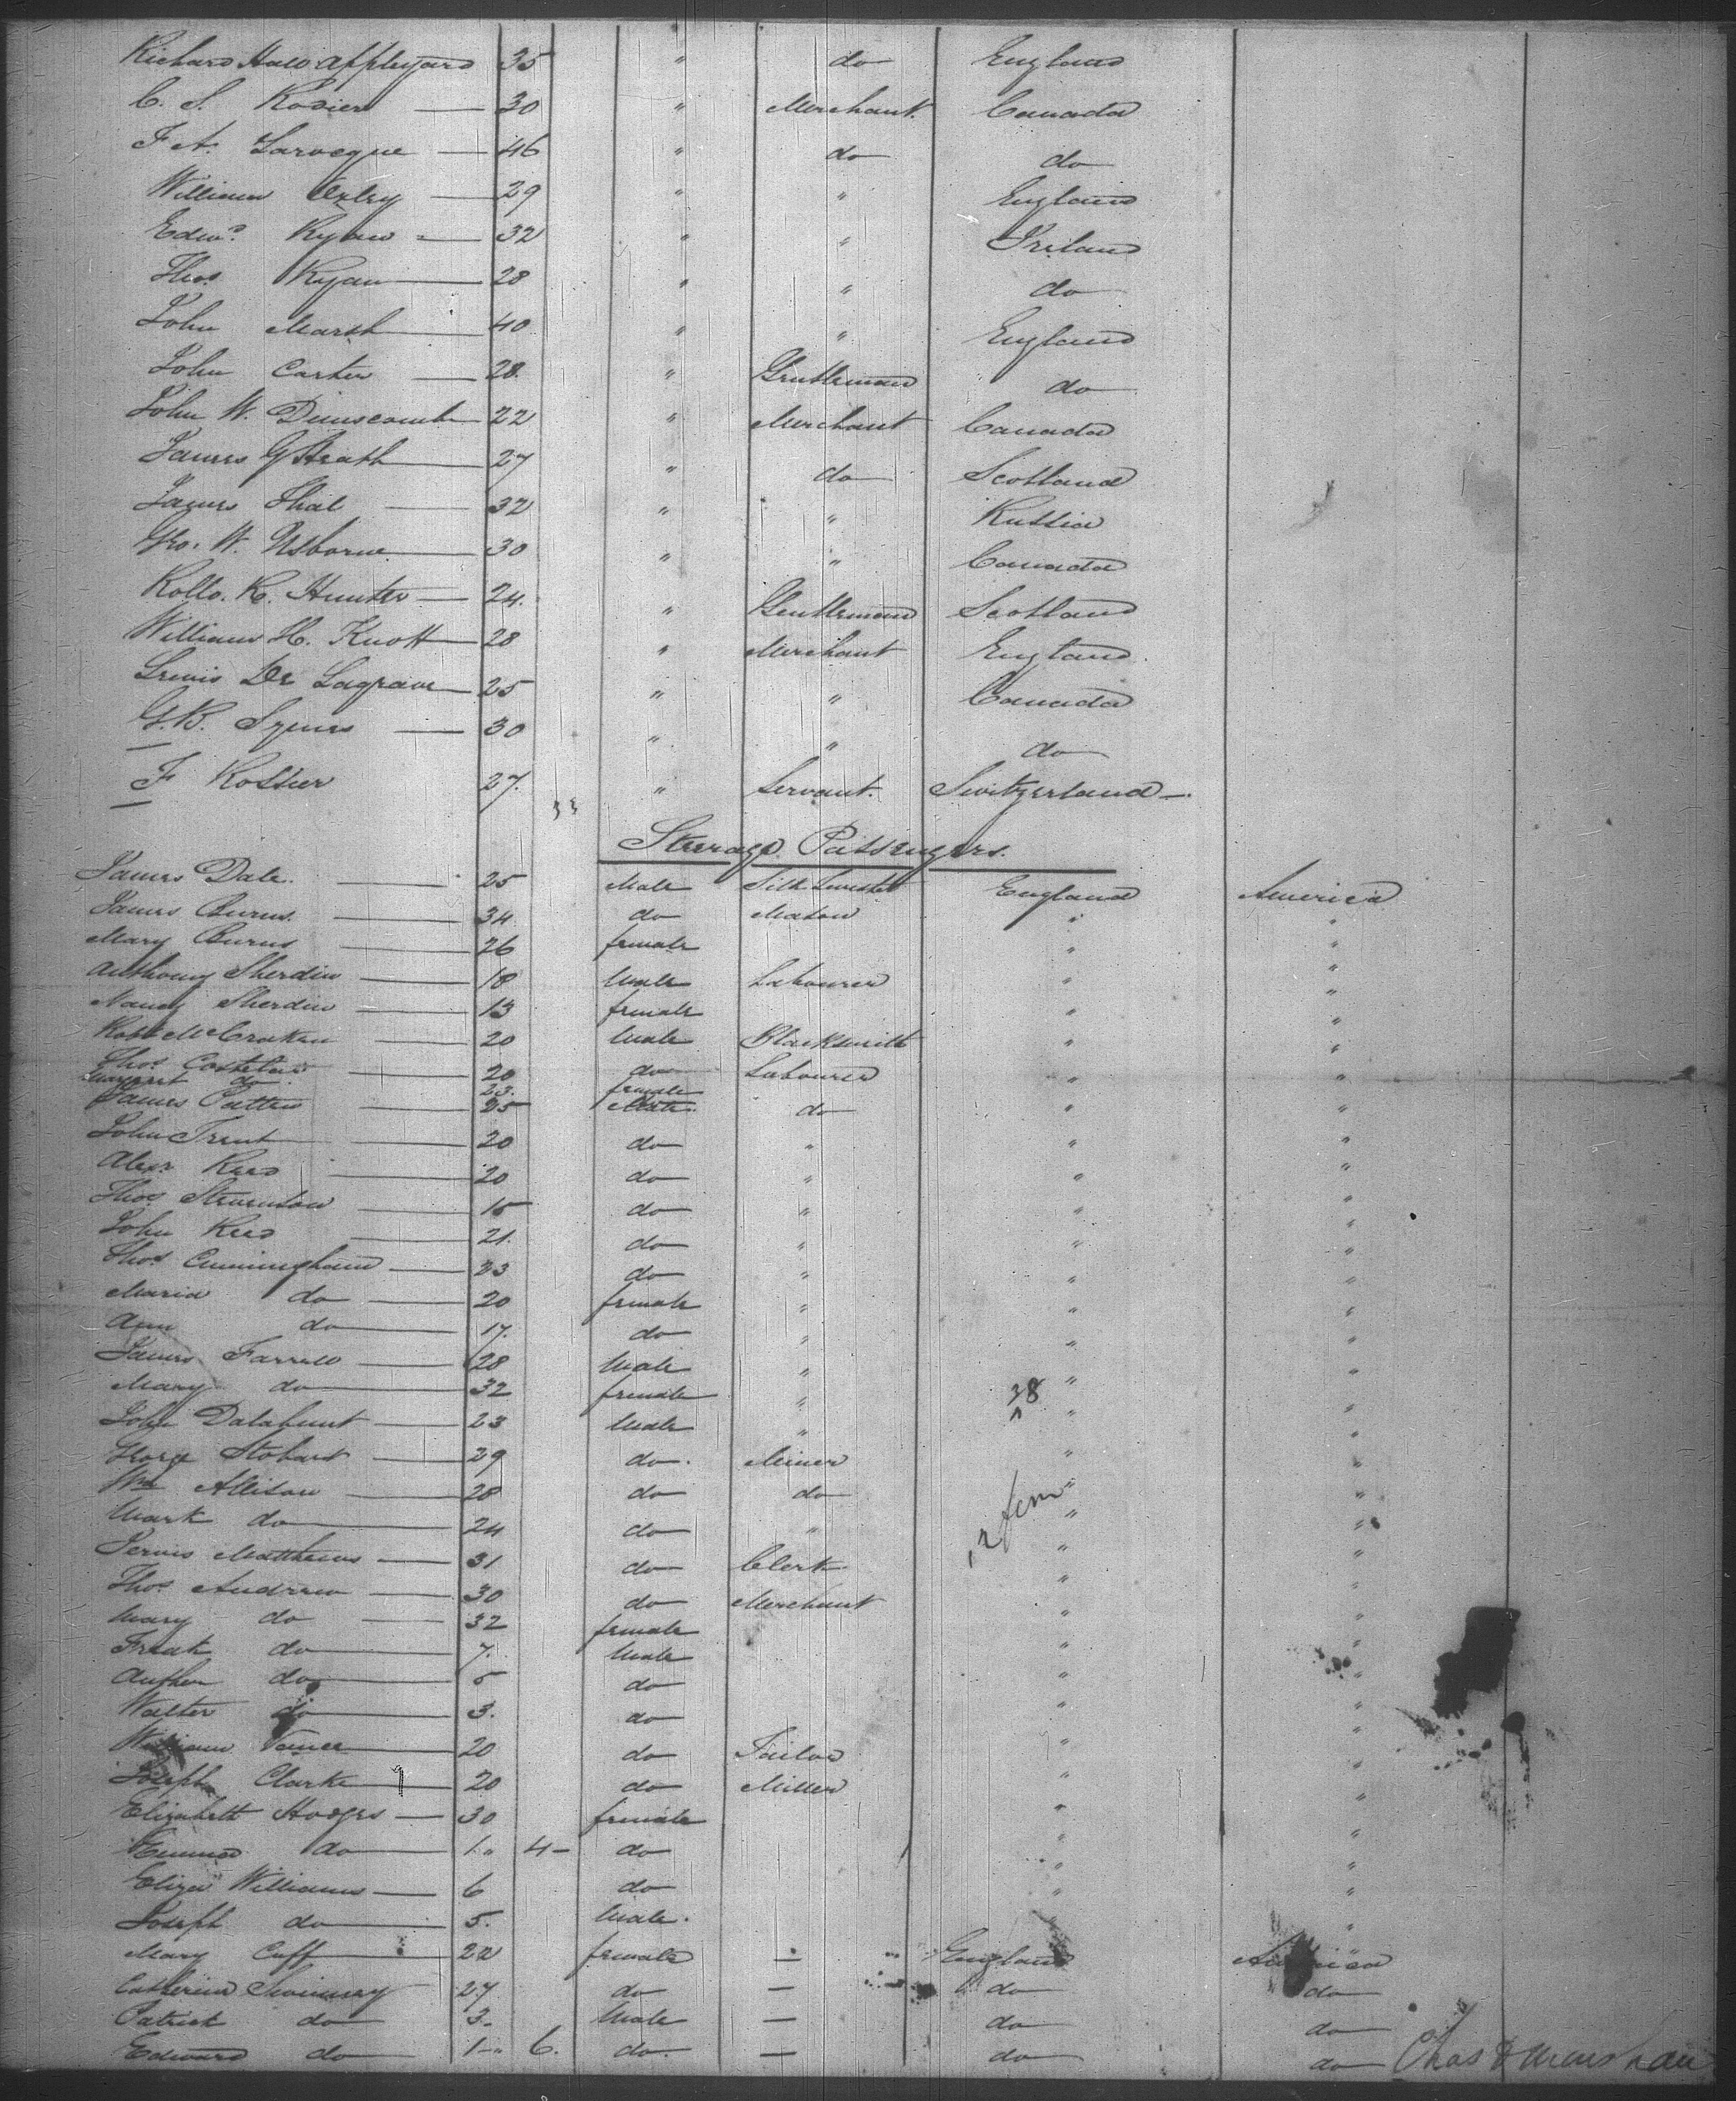 Richard Hall Appleyard 35 " do England
C. S. Rodier 30 " Merchant. Canada
F A. Larocque 46 " do do
William Oxley 29 " " England
Edwd. Ryan 32 " " Ireland
Thos. Ryan 28 " " do
John Marsh 40 " " England
John Carter 28. " Gentleman do
John W. Dunscomb 22 " Merchant Canada
James G Heath 27 " do Scotland
James Thal 32 " " Russia
Geo. W. Usborne 30 " " Canada
Rollo. R. Hunter 24. " Gentleman Scotland
William H. Knott 28 " Merchant England.
Lewis De Lagrave 25 " " Canada
G.B. Symes 30 " " do
F Rossier 27. " Servant. Switzerland
33
Steerage Passengers.
James Dale. 25 Male Silk Twister England America
James Burns. 34 do Mason " "
Mary Burns 26 female " "
Anthony Sherdin 18 Male Labourer " "
Nancy Sherdin 13 female " "
Robt McCraken 20 Male Blacksmith " "
Thos. 20 do Labourer " "
Margaret do. 23. female
James Patten 25 Male. do " "
John Trent 20 do " " "
Alexr Reed 20 do " " "
Thos 15 do " " "
John Reed 21. do " " "
Thos Cunningham 23 do " " "
Maria do 20 female " " "
Ann do 17. do " " "
James Farrell 28 Male " " "
Mary do 32 female " " "
38
John Dalahunt 23 Male " " "
George Stobart 29 do. Miner " "
Wm Allison 28 do do " "
Mark do 24 do " " "
12 fem
Jervis Matthews 31 do Clerk " "
Thos. Andrew 30 do Merchant " "
Mary do 32 female " "
do 7. Male " "
do 5 do " "
Walter do 3. do " "
William Vance 20 do Tailor " "
Joseph Clarke 20 do Miller " "
Elizabeth Hodges 30 female " "
Emma do 1 " 4 do " "
Eliza Williams 6 do " "
Joseph do 5. Male. " "
Mary Cuff 22 female — England America
Catherine Swinney 27 do — do do
Patrick do 3. Male — do do
Edward do 1 " 6. do. — do do
Chas